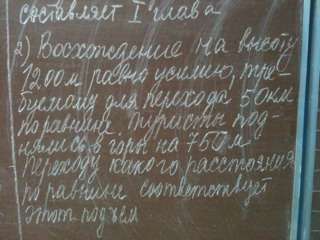 составляет I глава
2) Восхождение на высоту
1200м равно усилию, тре-
буемому для перехода 50км
по равнине. Туристы под-
нялись в горы на 750м
Переходу какого расстояния
по равнине соответствует
этот подъем